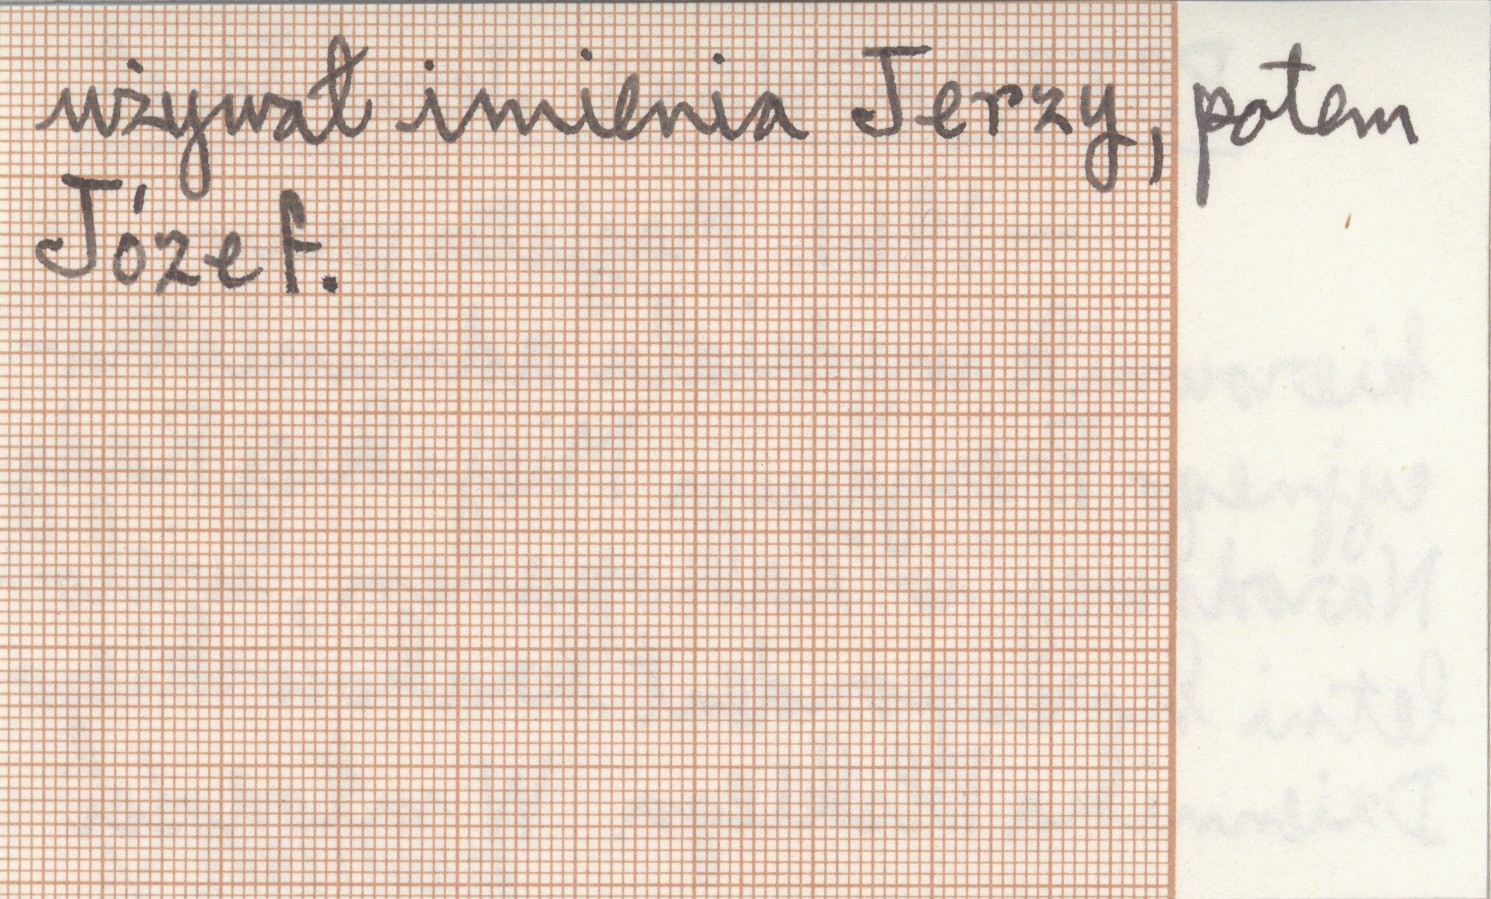 używał imienia Jerzy, potem
Józef.